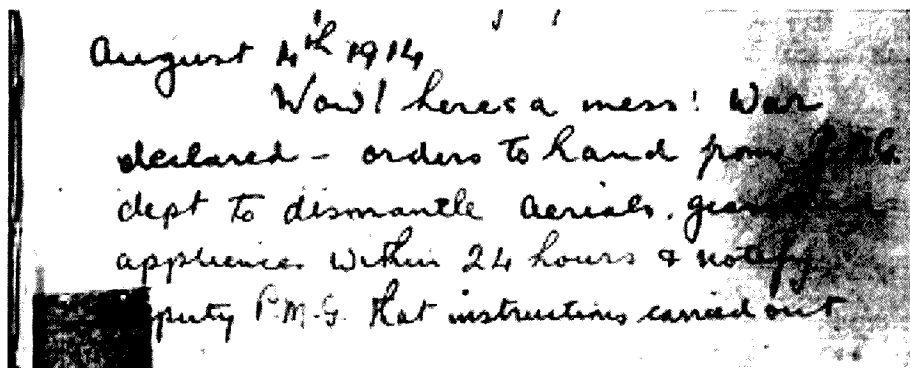 August 4th 1914
Wow! heres a mess! War
declared - orders to hand from P.M.G.
dept to dismantle aerials,
appliences within 24 hours & notify
puty P.M.G. that instructions carried out